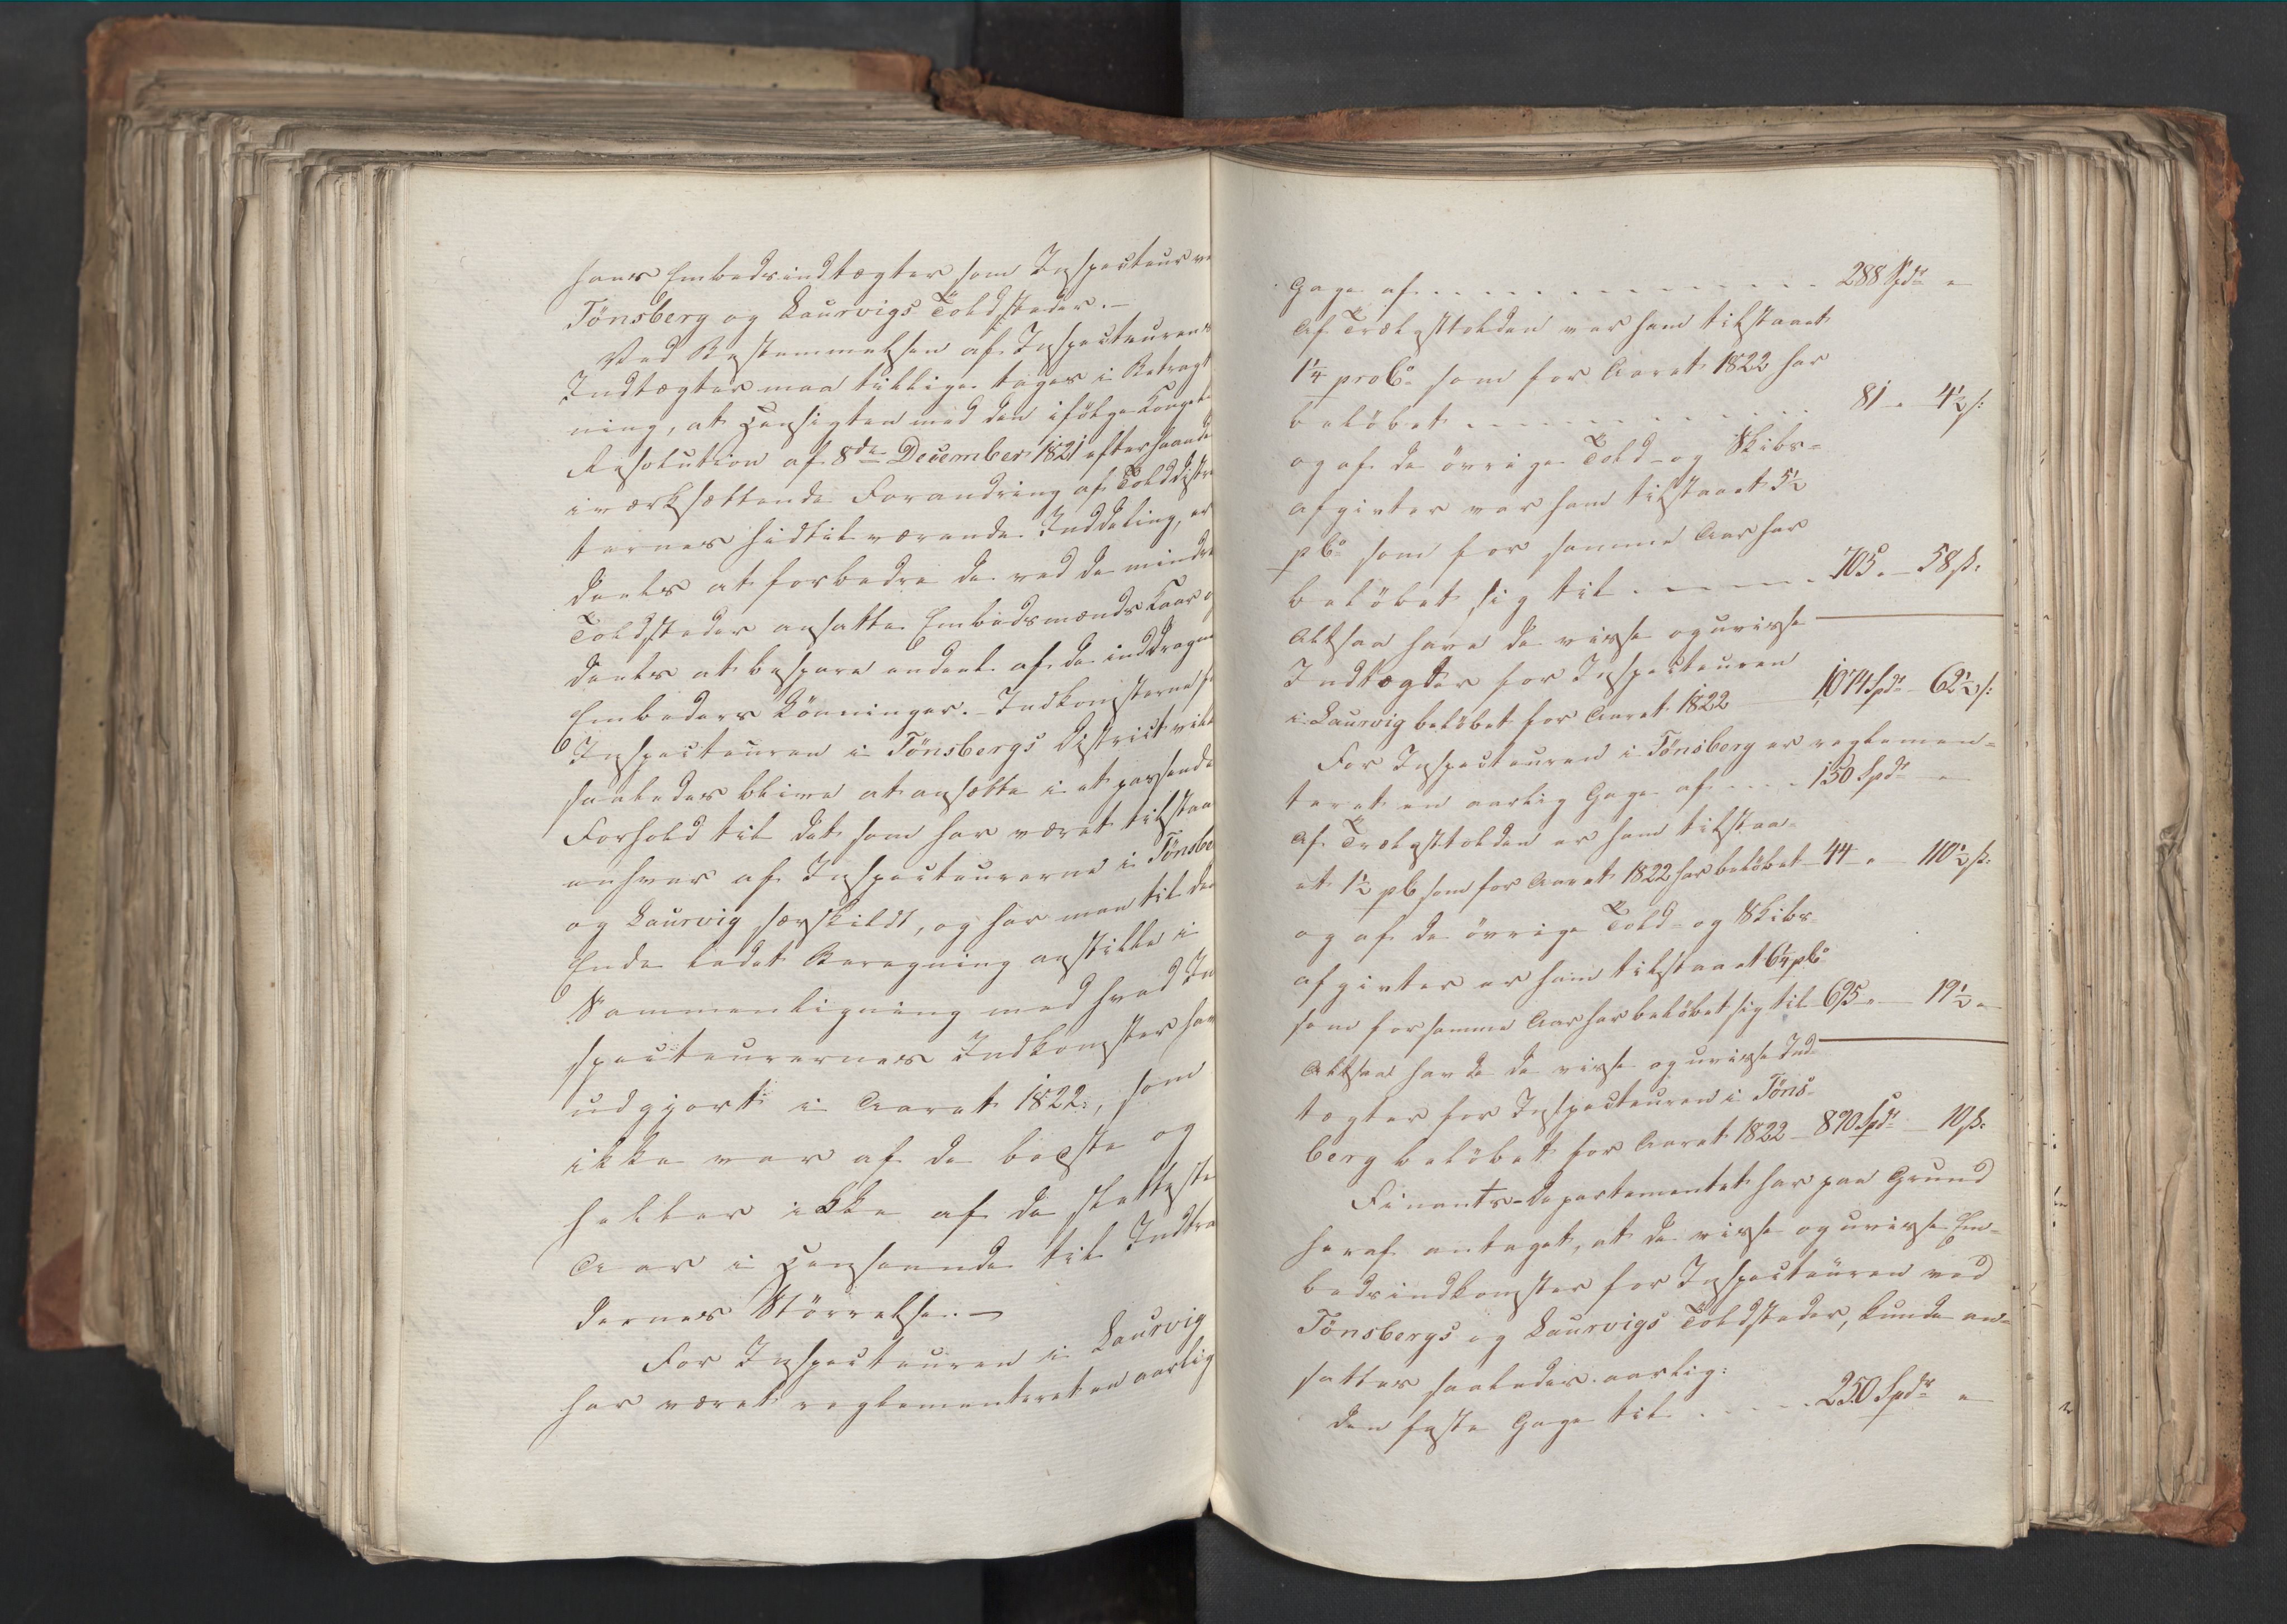 hans Embedsindtægter som Inspecteur ve
Tönsberg og Laurvigs Toldsteder.-
Ved Bestemmelsen af Inspecteurens
Indtægter maa tillige tages i Betragt
ning, at Hensigten med den ifölge Kongel.
Resolution af 8de December 1821 efterhaanden
iværksættende Forandring af Tolddistric
ternes hidtil værende Inddeling, er
deels at forbedre de ved de mindre
Toldsteder ansatte Embedsmænds Kaar og
deels at bespare endeel af de inddragne
Embeders Lönninger.- Indkomsterne for
Inspecteuren i Tönsbergs District vil
saaledes blive at ansætte i et passende
Forhold til det som har været tilstaaet
enhver af Inspecteurerne i Tönsberg
og Laurvig særskildt, og har man til den
Ende ladet Beregning anstille i
Sammenligning med hvad In
specteurernes Indkomster har
udgjort i Aaret 1822, som
ikke var af de beste og
heller ikke af de sletteste
Aar i Henseende til Indtra
dernes Störrelse.-
For Inspecteuren i Laurvig
har været reglementeret en aarlig
Gage af . . . . . . . . . . 288 Spdr "
Af Trælasttolden var ham tilstaaet
1 1/4 proCo som for Aaret 1822 har
belöbet . . . . . . . . . . 81 - " 4 1/2 s:
og af de övrige Told- og Skibs-
afgivter var ham tilstaaet 5 1/2
pCo som for samme Aar har
belöbet sig til . - - - - . 705 " - 58 s:
Altsaa have de visse og uvisse
Indtægter for Inspecteuren
i Laurvig belöbet for Aaret 1822 - 1074 Spdr - 62 1/2 s:
For Inspecteuren i Tönsberg er reglemen-
teret en aarlig Gage af . . . . 150 Spdr "
Af Trælasttolden er ham tilstaa-
et 1 1/2 pC som for Aaret 1822 har belöbet - 44 - " 110 1/2 s:
og af de övrige Told- og Skibs-
afgivter er ham tilstaaet 6 1/4 pCo
som for samme Aar har belöbet sig til 695 " - 19 1/2 "
Altsaa havde de visse og uvisse Ind-
tægter for Inspecteuren i Töns-
berg belöbet for Aaret 1822 - 890 Spdr - 10 s:
Finants-Departementet har paa Grund
heraf antaget, at de visse og uvisse Em-
bedsindkomster for Inspecteuren ved
Tönsbergs og Laurvigs Toldsteder, kunde an-
sættes saaledes aarlig:
den faste Gage til . . . . . 250 Spdr "